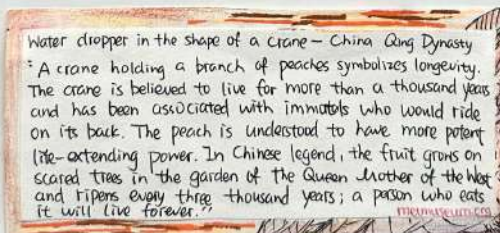 Water dropper in the shape of a crane – China Qing Dynasty
"A crane holding a branch of peaches symbolizes longevity.
The crane is believed to live for more than a thousand years
and has been associated with immotals who would ride
on its back. The peach is understood to have more potent
life-extending power. In Chinese legend, the fruit grows on
scared trees in the garden of the Queen Mother of the West
and ripens every three thousand years; a person who eats
it will live forever."
metmuseum.org